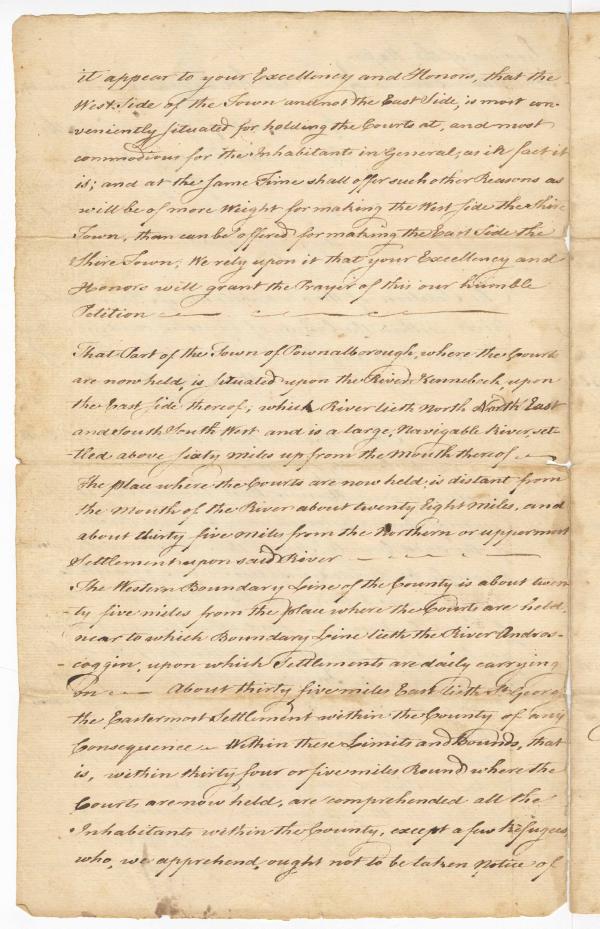 it appear to your Excellency and Honors, that the
West Side of the Town and not the East Side, is most con-
veniently situated for holding the Courts at, and most
commodious for the Inhabitants in General, as in fact it
is; and at the same Time shall offer such other Reasons as
will be of more Weight for making the West side the Shire
Town, than can be offered for making the East Side the
Shire Town; We rely upon it that your Excellency and
Honors will grant the Prayer of this our humble
Petition
That Part of the Town of Pownalborough, where the Courts
are now held, is situated upon the River Kennebeck, upon
the East side thereof; which River lieth North North East
and South South West and is a large, Navigable River, set-
-tled above sixty miles up from the Mouth thereof
The place where the Courts are now held, is distant from
the Mouth of the River about twenty Eight Miles, and
about thirty five miles from the Northern or uppermost
Settlement upon said River
The Western Boundary Line of the County is about twen-
-ty five miles from the place where the Courts are held,
near to which Boundary Line lieth the River Andros-
-coggin, upon which Settlements are daily carrying
on About thirty five miles East lieth St. Georges
the Eastermost Settlement within the County of any
Consequence Within these Limits and Bounds, that
is, within thirty four or five miles Round where the
Courts are now held, are comprehended all the
Inhabitants within the County, except a few Refugees
who, we apprehend, ought not to be taken Notice of